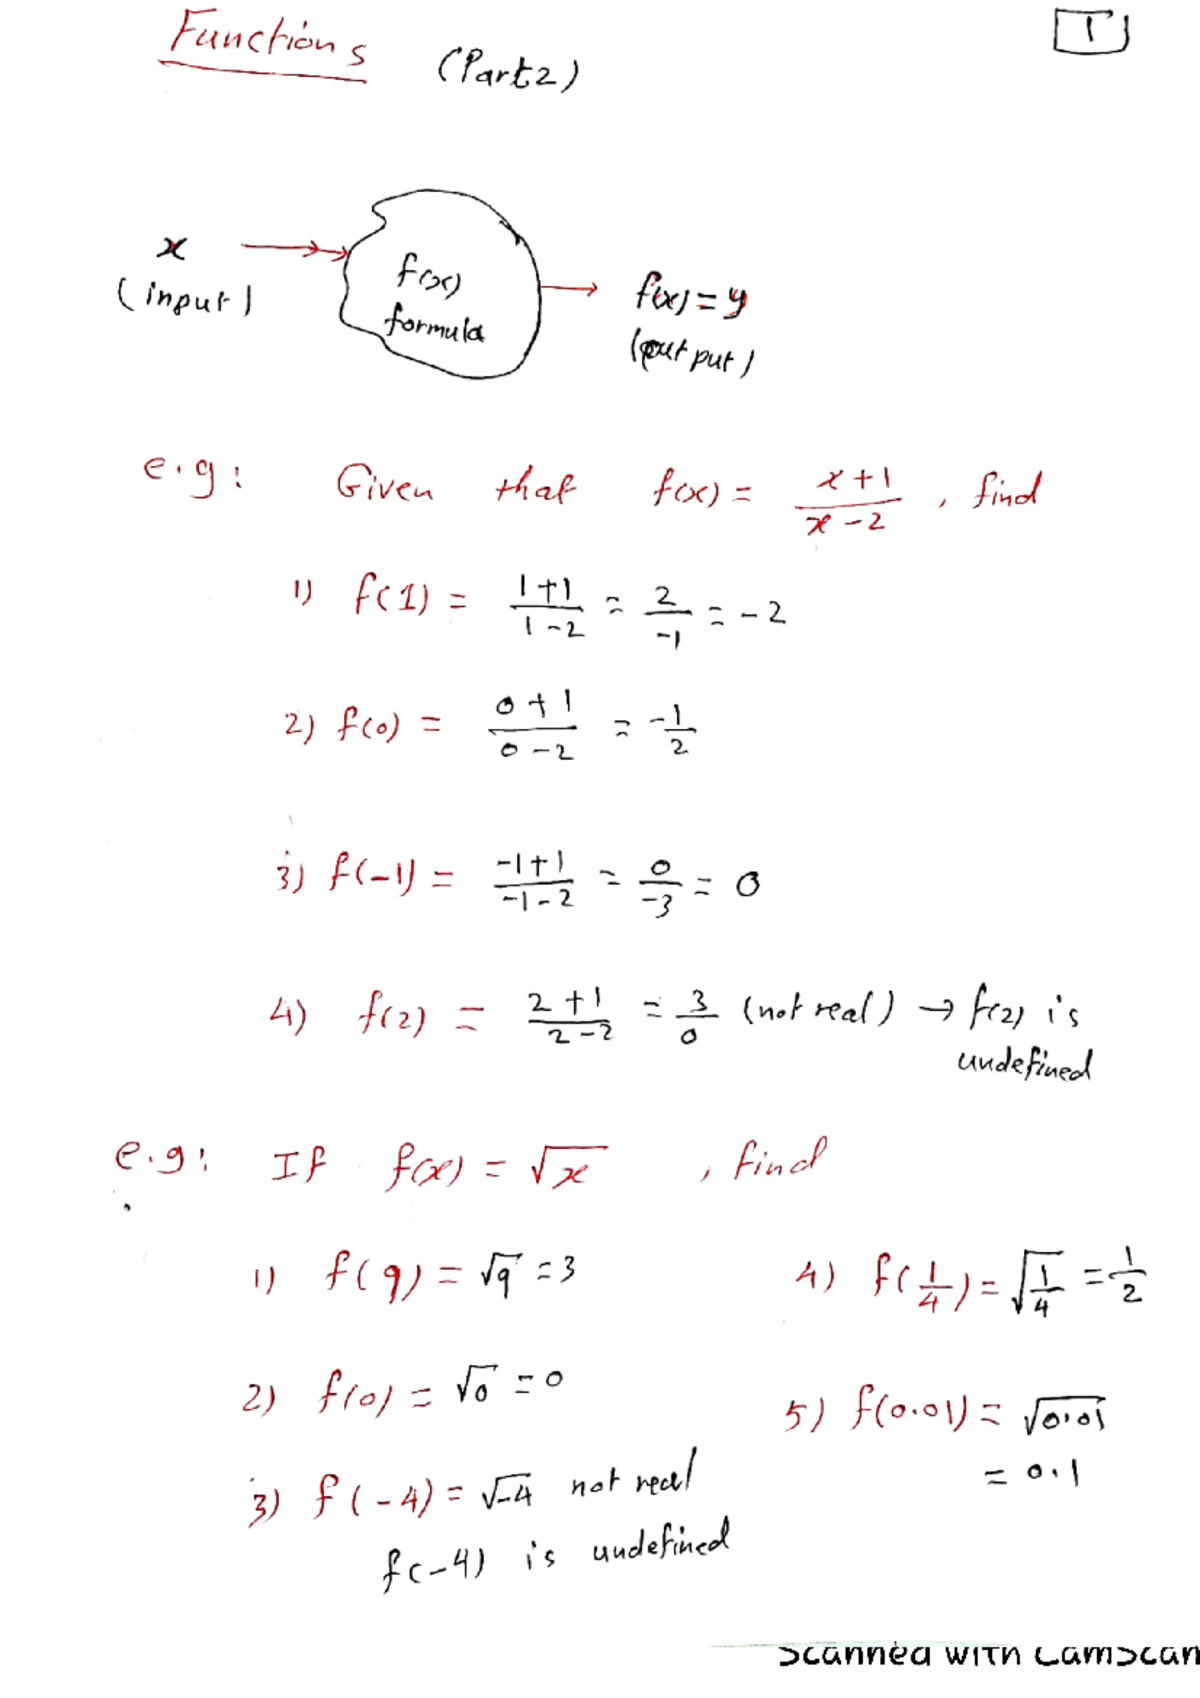 Functions (Part 2)
1
x
(input)
f(x)
formula
f(x) = y
(output)
e.g: Given that f(x) = \frac{x+1}{x-2} , find
1) f(1) = \frac{1+1}{1-2} = \frac{2}{-1} = -2
2) f(0) = \frac{0+1}{0-2} = \frac{-1}{2}
3) f(-1) = \frac{-1+1}{-1-2} = \frac{0}{-3} = 0
4) f(2) = \frac{2+1}{2-2} = \frac{3}{0} (not real) → f(2) is
undefined
e.g: If f(x) = √x , find
1) f(9) = √9 = 3
2) f(0) = √0 = 0
3) f(-4) = √-4 not real
f(-4) is undefined
4) f(\frac{1}{4}) = \sqrt{\frac{1}{4}} = \frac{1}{2}
5) f(0.01) = √0.01
= 0.1
Scanned with CamScan